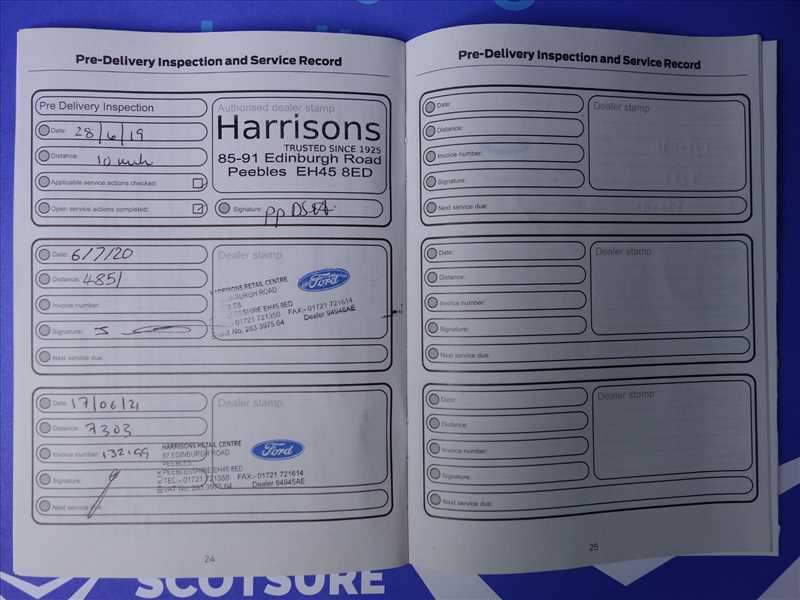 Pre-Delivery Inspection and Service Record
Pre Delivery Inspection
Date: 28/6/19
Distance: 10
Applicable service actions checked:
Open service actions completed:
Authorised dealer stamp
Harrisons
TRUSTED SINCE 1925
85-91 Edinburgh Road
Peebles EH45 8ED
Signature: pp
Date: 6/7/20
Distance: 4851
Invoice number:
Signature:
Next service due:
Dealer stamp
HARRISONS RETAIL CENTRE
Ford
01721 721350 FAX:- 01721 721614
No. 283 3975 64 Dealer 94945AE
Date: 17/06/21
Distance: 7303
Invoice number:
Signature:
Next service due:
Dealer stamp
HARRISONS RETAIL CENTRE
Ford
97 EDINBURGH ROAD
PEEBLES
PEEBLESSHIRE EH45 8ED
TEL:- 01721 721350 FAX:- 01721 721614
VAT No. 283 3975 64 Dealer 94945AE
24
Pre-Delivery Inspection and Service Record
Date:
Distance:
Invoice number:
Signature:
Next service due:
Dealer stamp
Date:
Distance:
Invoice number:
Signature:
Next service due:
Dealer stamp
Date:
Distance:
Invoice number:
Signature:
Next service due:
Dealer stamp
25
SCOTSURE